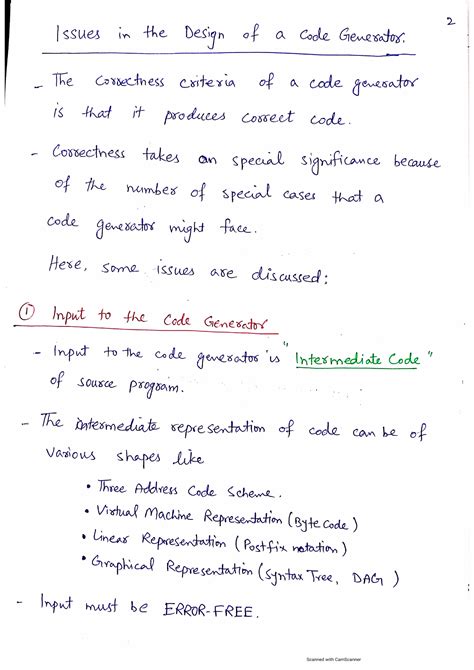 2
Issues in the Design of a Code Generator.
- The correctness criteria of a code generator
is that it produces correct code.
- Correctness takes an special significance because
of the number of special cases that a
code generator might face.
Here, some issues are discussed:
① Input to the Code Generator
- Input to the code generator is "Intermediate Code"
of source program.
- The intermediate representation of code can be of
various shapes like
• Three Address Code Scheme.
• Virtual Machine Representation (Byte Code)
• Linear Representation (Postfix notation)
• Graphical Representation (Syntax Tree, DAG)
- Input must be ERROR-FREE.
Scanned with CamScanner